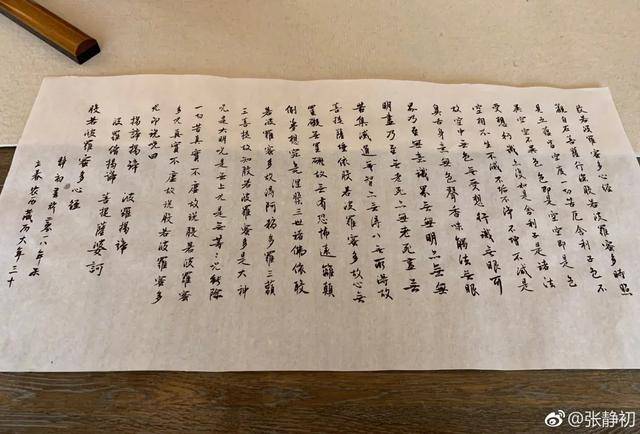 般若波羅蜜多心經
觀自在菩薩行深般若波羅蜜多時照
見五蘊皆空度一切苦厄舍利子色不
異空空不異色色即是空空即是色
受想行識亦復如是舍利子是諸法
空相不生不滅不垢不淨不增不減是
故空中無色無受想行識無眼耳
鼻舌身意無色聲香味觸法無眼
界乃至無意識界無無明亦無無
明盡乃至無老死亦無老死盡無
苦集滅道無智亦無得以無所得故
菩提薩埵依般若波羅蜜多故心無
罣礙無罣礙故無有恐怖遠離顛
倒夢想究竟涅槃三世諸佛依般
若波羅蜜多故得阿耨多羅三藐
三菩提故知般若波羅蜜多是大神
咒是大明咒是無上咒是無等等咒能除
一切苦真實不虛故說般若波羅蜜
多咒真實不虛故說般若波羅蜜多
咒即說咒曰
揭諦揭諦 波羅揭諦
波羅僧揭諦 菩提薩婆訶
般若波羅蜜多心經
靜初書於 零八年
立春
@张静初